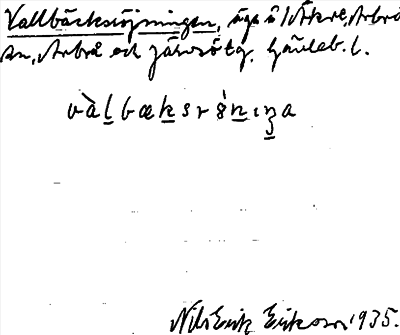 Vallbäcksröjningen, äga å 1 Åkre, Arbrå
sn, Arbrå och Järvsö tg. Gävleb. l.
vàlbæksröniŋa
Nils Erik Eriksson 1935.